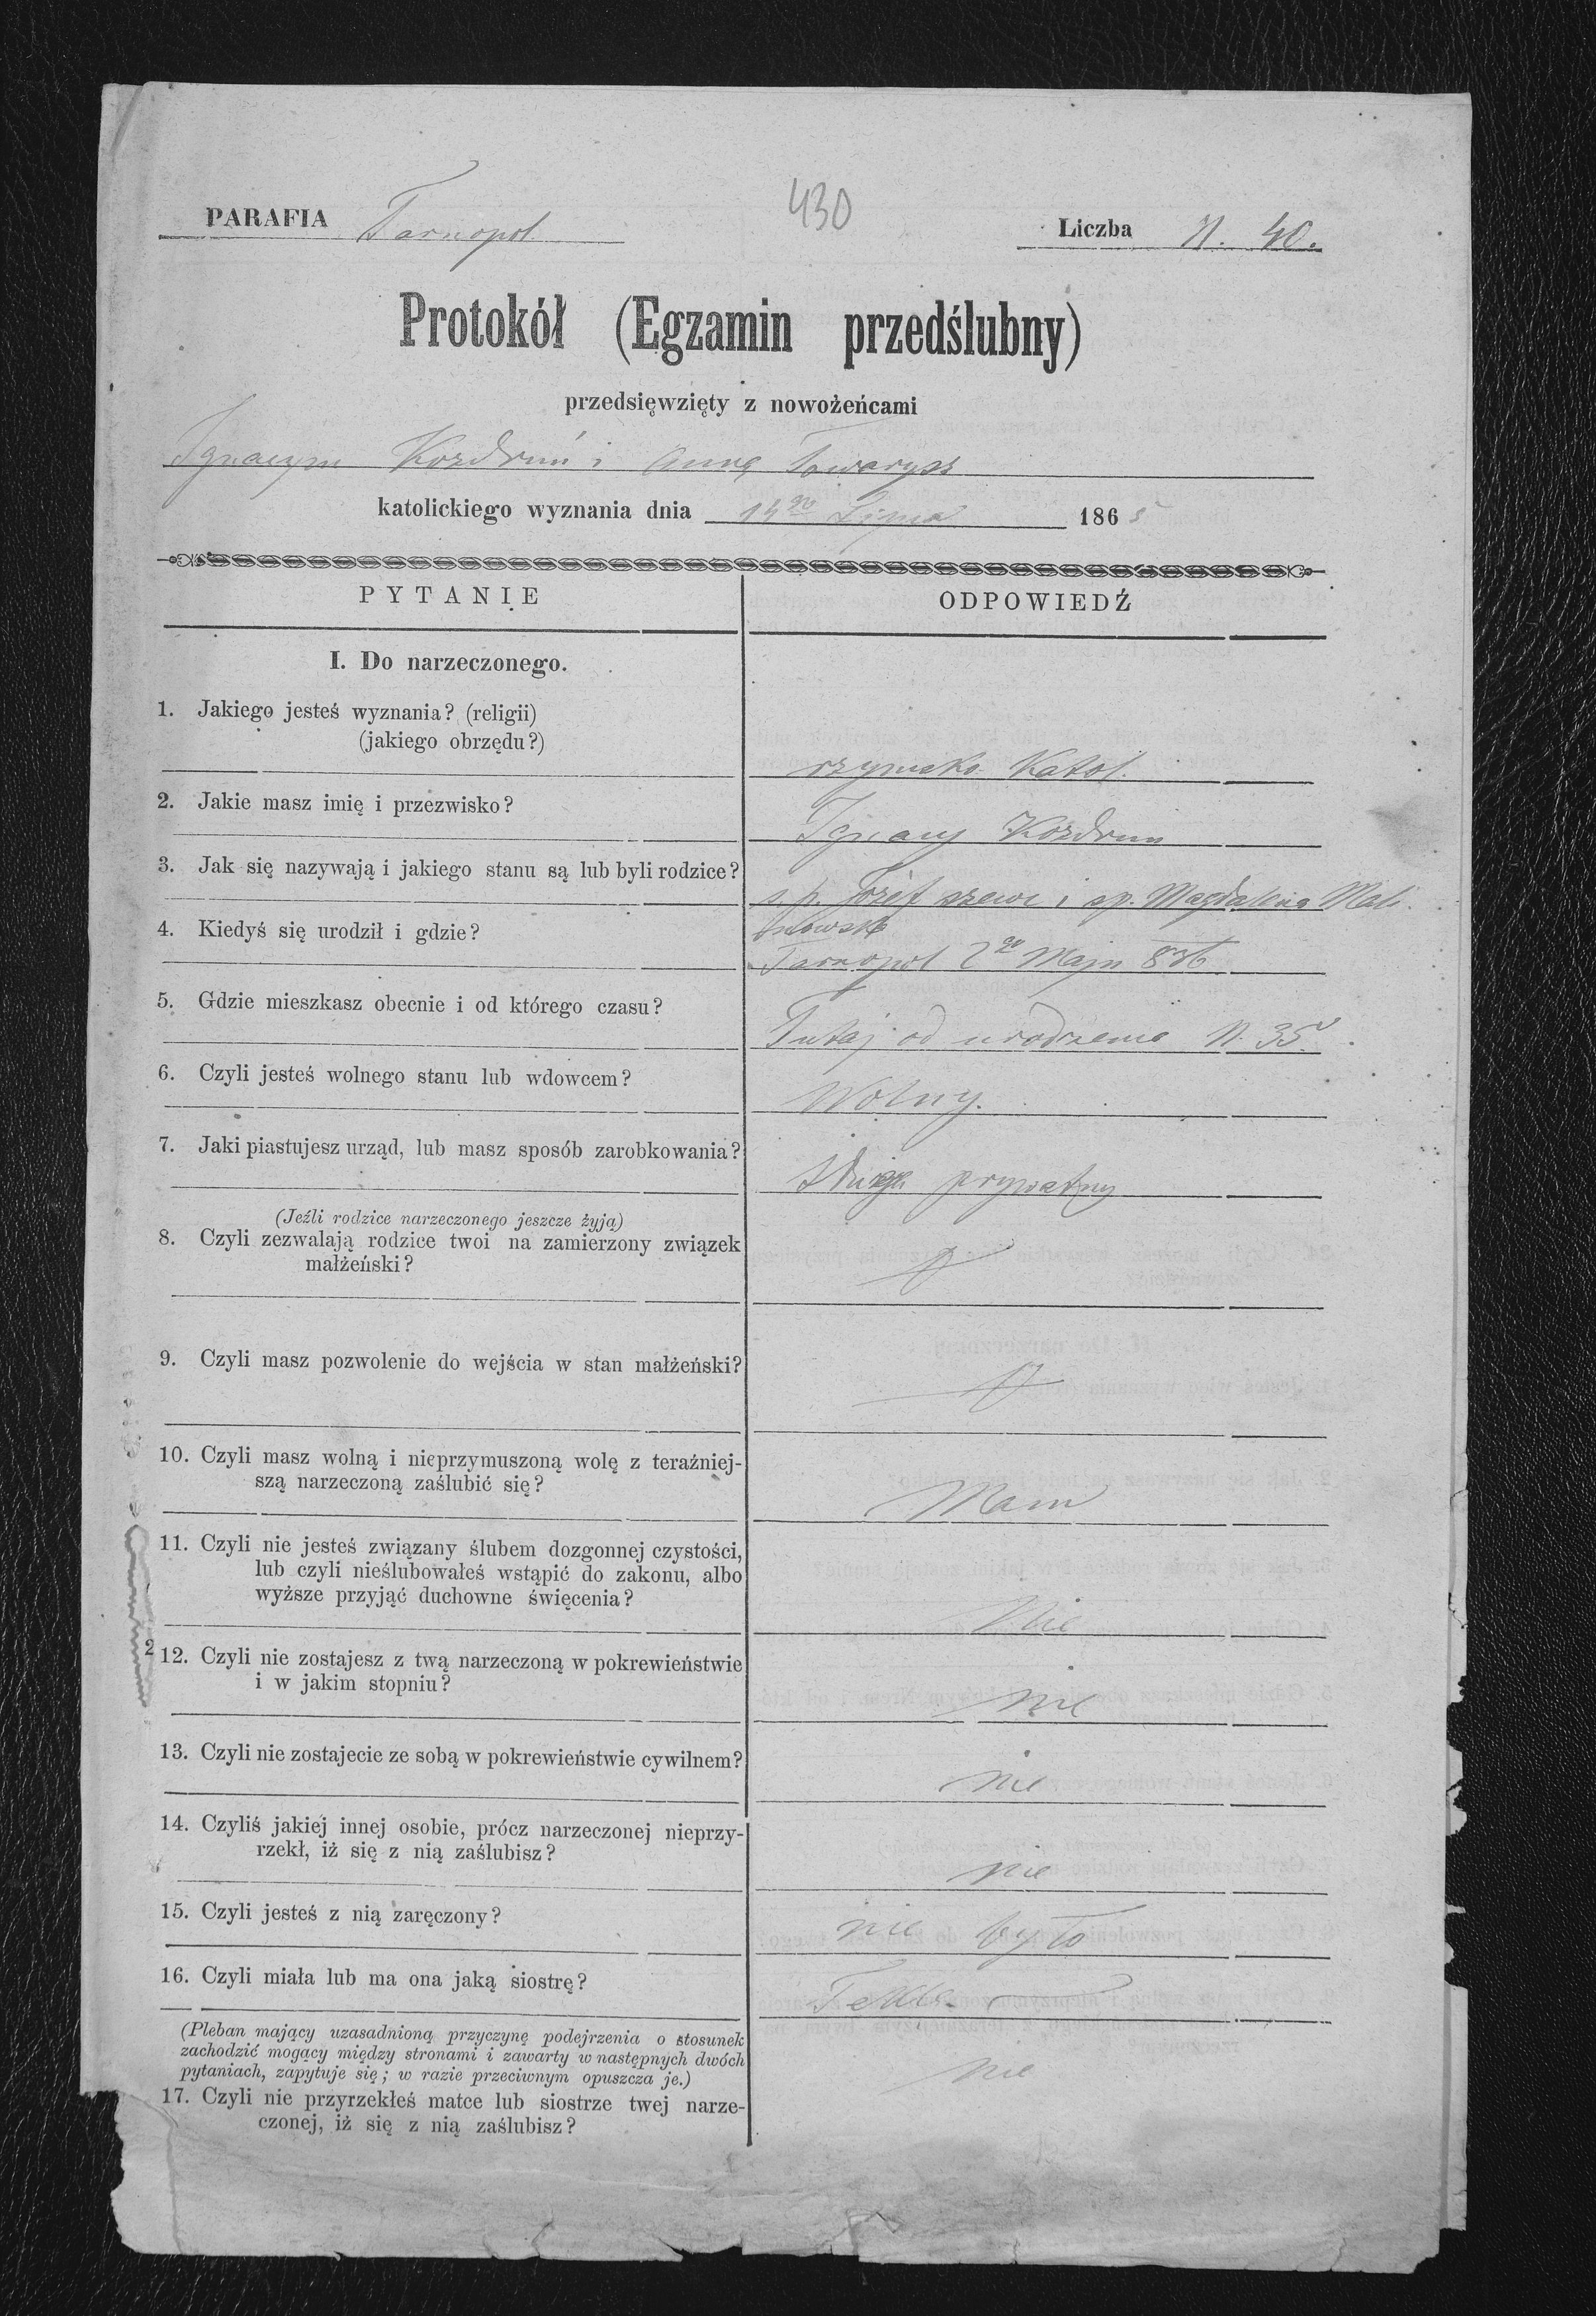 430
PARAFIA Tarnopol Liczba N. 40.
Protokół (Egzamin przedślubny)
przedsięwzięty z nowożeńcami
Ignacym Kozdruń i Anną Towarysz
katolickiego wyznania dnia 14go Lipca 1865
PYTANIE ODPOWIEDŹ
I. Do narzeczonego.
1. Jakiego jesteś wyznania? (religii)
(jakiego obrzędu?)
rzymsko Katol.
2. Jakie masz imię i przezwisko?
Ignacy Kozdruń
3. Jak się nazywają i jakiego stanu są lub byli rodzice?
s.p. Józef szewc i sp. Magdalena Mali
nowska
4. Kiedyś się urodził i gdzie?
Tarnopol 2go Maja 836
5. Gdzie mieszkasz obecnie i od którego czasu?
Tutaj od urodzenia N. 35
6. Czyli jesteś wolnego stanu lub wdowcem?
Wolny.
7. Jaki piastujesz urząd, lub masz sposób zarobkowania?
Sługa prywatny
(Jeźli rodzice narzeczonego jeszcze żyją)
8. Czyli zezwalają rodzice twoi na zamierzony związek
małżeński?
9. Czyli masz pozwolenie do wejścia w stan małżeński?
10. Czyli masz wolną i nieprzymuszoną wolę z teraźniej-
szą narzeczoną zaślubić się?
Mam
11. Czyli nie jesteś związany ślubem dozgonnej czystości,
lub czyli nieślubowałeś wstąpić do zakonu, albo
wyższe przyjąć duchowne święcenia?
Nie
2
12. Czyli nie zostajesz z twą narzeczoną w pokrewieństwie
i w jakim stopniu?
nie
13. Czyli nie zostajecie ze sobą w pokrewieństwie cywilnem?
nie
14. Czyliś jakiej innej osobie, prócz narzeczonej nieprzy-
rzekł, iż się z nią zaślubisz?
nie
15. Czyli jesteś z nią zaręczony?
nie było
16. Czyli miała lub ma ona jaką siostrę?
(Pleban mający uzasadnioną przyczynę podejrzenia o stosunek
zachodzić mogący między stronami i zawarty w następnych dwóch
pytaniach, zapytuje się; w razie przeciwnym opuszcza je.)
17. Czyli nie przyrzekłeś matce lub siostrze twej narze-
czonej, iż się z nią zaślubisz?
nie